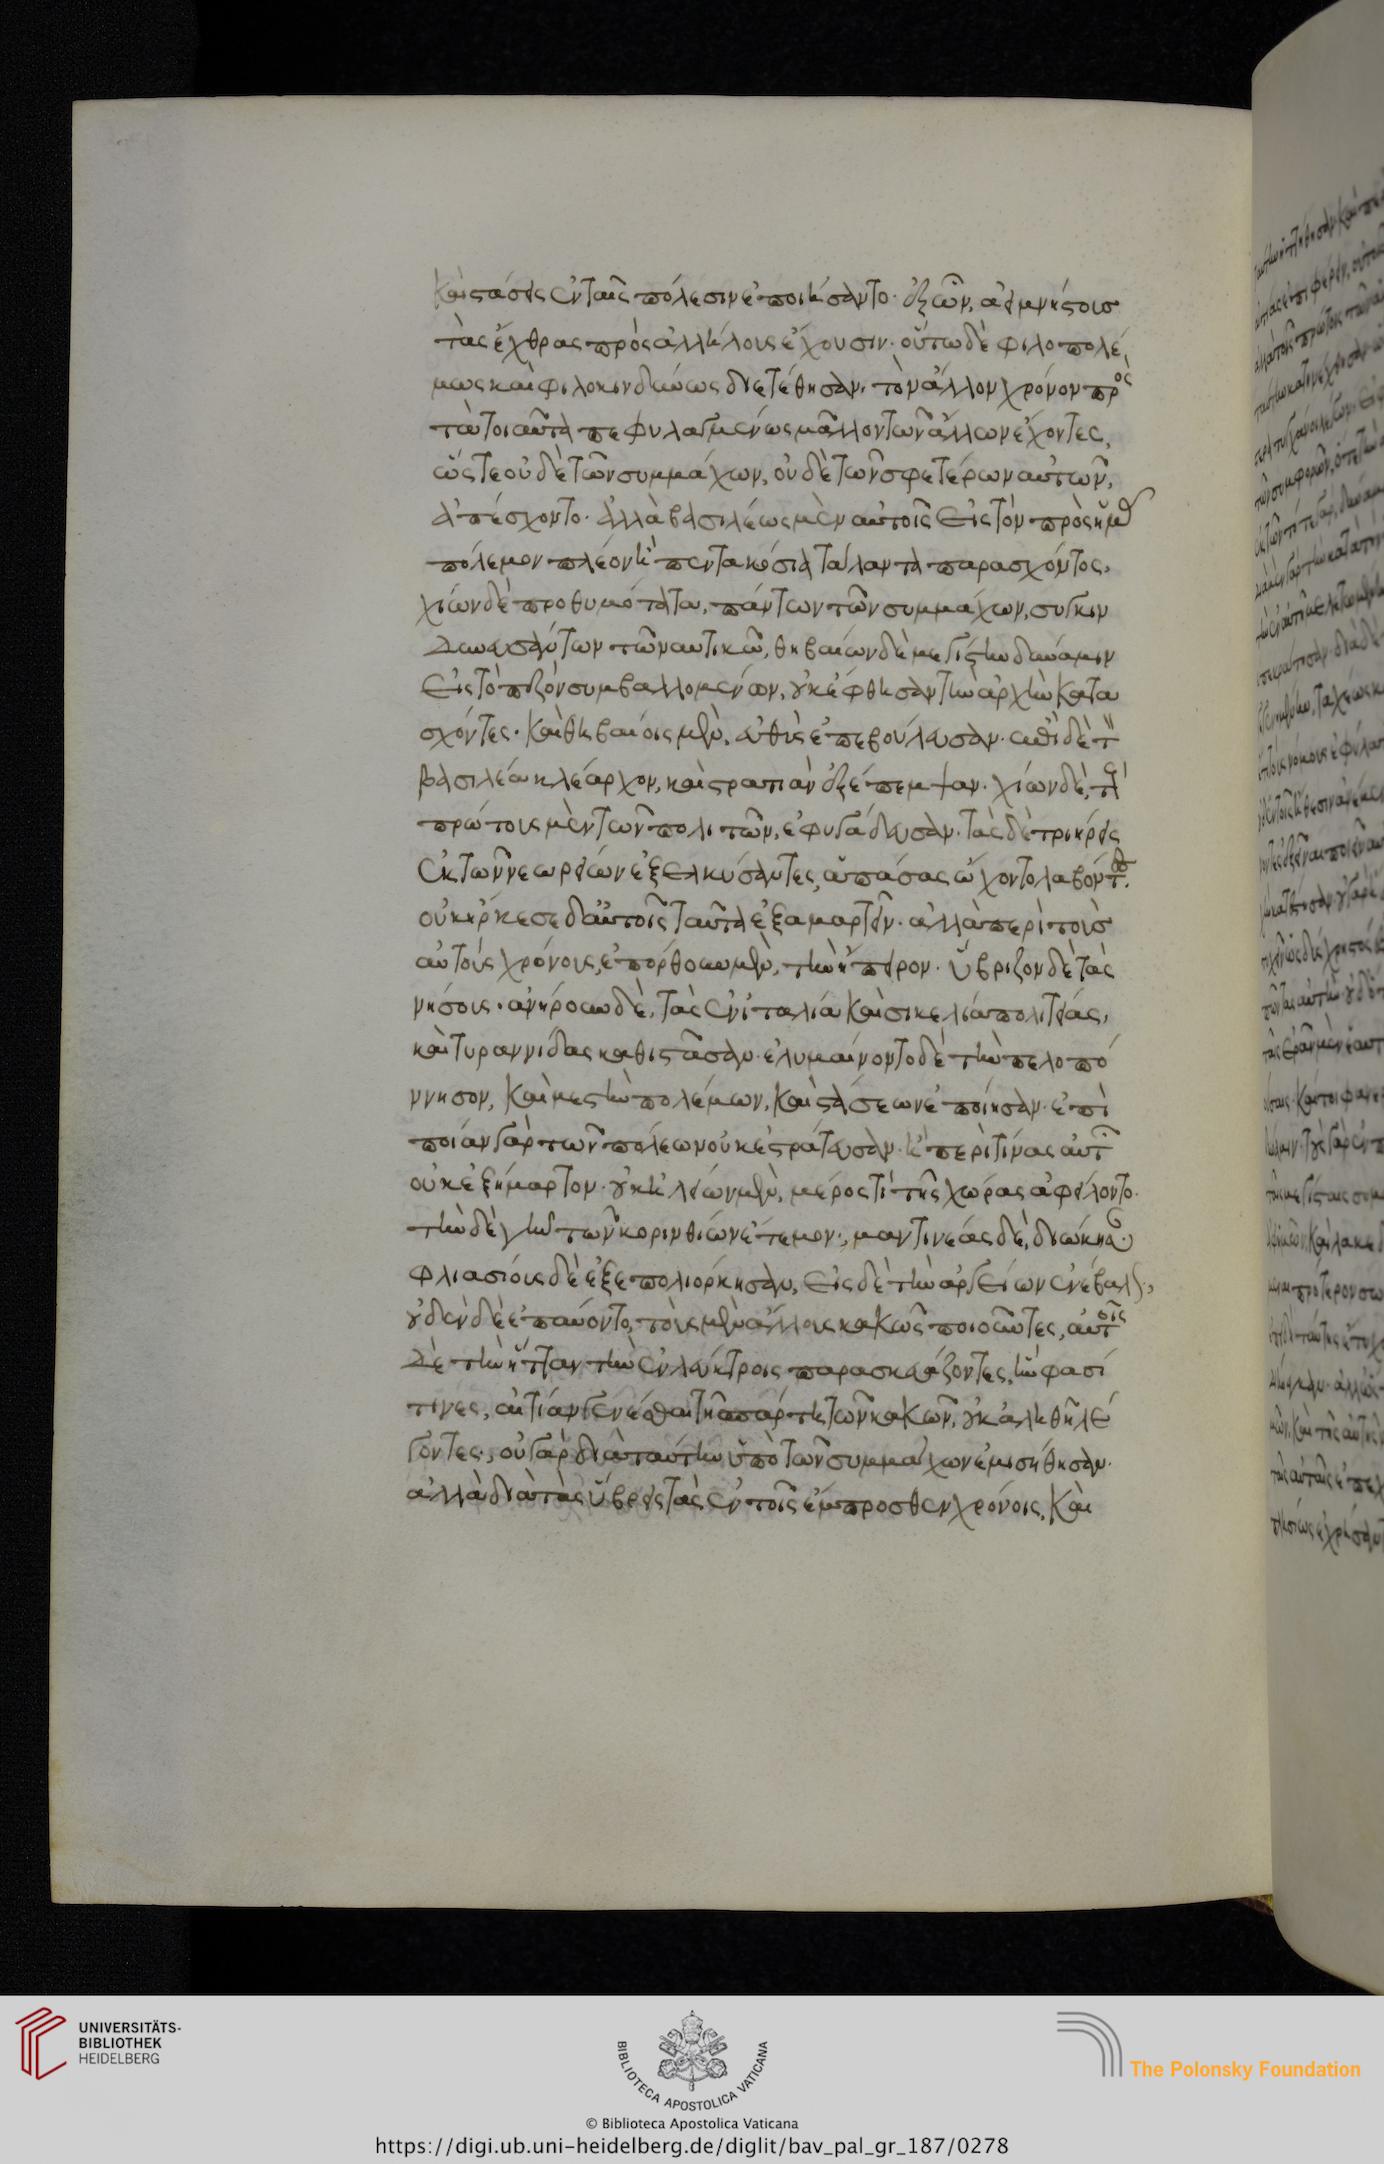 καὶ στάσεις ἐν ταῖς πόλεσιν ἐποιήσαντο· ἐξ ὧν, ἀειμνήστους
τὰς ἔχθρας πρὸς ἀλλήλους ἔχουσιν· οὕτω δὲ φιλοπολέ
μως καὶ φιλοκινδύνως διετέθησαν, τὸν ἄλλον χρόνον πρὸς
τὰ τοιαῦτα πεφυλαγμένως μᾶλλον τῶν ἄλλων ἔχοντες,
ὥστε οὐδὲ τῶν συμμάχων, οὐδὲ τῶν σφετέρων αὐτῶν,
ἀπέσχοντο· ἀλλὰ βασιλέως μὲν αὐτοῖς εἰς τὸν πρὸς ἡμᾶς
πόλεμον πλέον ἢ πεντακόσια τάλαντα παρασχόντος,
χίων δὲ προθυμότατα, πάντων τῶν συμμάχων, συγκιν
δυνευσάντων τῶ ναυτικῶ, θηβαίων δὲ μεγίστην δύναμιν
εἰς τὸ πεζὸν συμβαλλομένων, οὐκ ἔφθησαν τὴν ἀρχὴν κατα
σχόντες· καὶ θηβαίοις μὲν, εὐθὺς ἐπεβούλευσαν· ἐπὶ δὲ τ
βασιλέα κλέαρχον, καὶ στρατιὰν ἐξέπεμψαν· χίων δὲ, τ
πρώτους μὲν τῶν πολιτῶν, ἐφυγάδευσαν· τὰς δὲ τριήρεις
ἐκ τῶν νεωρείων ἐξελκύσαντες, ἁπάσας ὤχοντο λαβόντες.
οὐκ ἤρκεσε δ' αὐτοῖς ταῦτα ἐξαμαρτεῖν· ἀλλὰ περὶ τοὺς
αὐτοὺς χρόνους, ἐπόρθουν μὲν, τὴν ἤπειρον· ὕβριζον δὲ τὰς
νήσους· ἀνήρουν δὲ, τὰς ἐν ἰταλία καὶ σικελία πολιτείας,
καὶ τυραννίδας καθίστασαν· ἐλυμαίνοντο δὲ τὴν πελοπό
ννησον, καὶ μεστὴν πολέμων, καὶ στάσεων ἐποίησαν· ἐπὶ
ποίαν γὰρ τῶν πόλεων οὐκ ἐστράτευσαν· ἢ περὶ τίνας αὐτ
οὐκ ἐξήμαρτον· οὐκ ἠλείων μὲν, μέρος τὶ τῆς χώρας ἀφείλοντο·
τὴν δὲ γῆν τῶν κορινθίων ἔτεμον·, μαντινέας δὲ, διώκησαν·
φλιασίους δὲ ἐξεπολιόρκησαν, εἰς δὲ τὴν ἀργείων ἐνέβαλον·,
οὐδὲν δὲ ἐπαύοντο, τοὺς μὲν ἄλλους κακῶς ποιοῦντες, αὐτοῖς
δὲ τὴν ἧτταν τὴν ἐν λεύκτροις παρασκευάζοντες, ἥν φασί
τινες, αἰτίαν γενέσθαι τῆ σπάρτη τῶν κακῶν, οὐκ ἀληθῆ λέ
γοντες·, οὐ γὰρ διὰ ταύτην ὑπὸ τῶν συμμάχων ἐμισήθησαν·
ἀλλὰ διὰ τὰς ὕβρεις τὰς ἐν τοῖς ἔμπροσθεν χρόνοις, καὶ
UNIVERSITÄTS-
BIBLIOTHEK
HEIDELBERG
BIBLIOTECA APOSTOLICA VATICANA
The Polonsky Foundation
© Biblioteca Apostolica Vaticana
https://digi.ub.uni-heidelberg.de/diglit/bav_pal_gr_187/0278